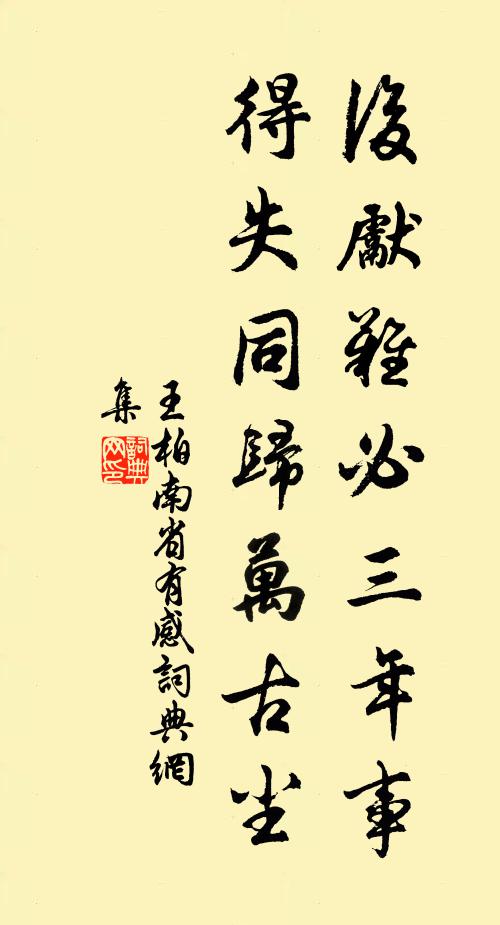 後獻難必三年事
得失同歸萬古尘
王柏南省有感詞典網
集
詞典
网印